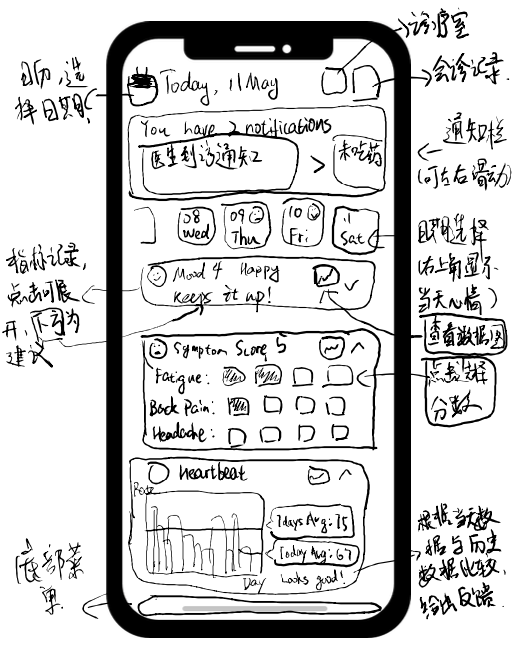 诊疗室
日历,选
择日期
Today, 11 May
会诊记录
You have 2 notifications
医生到诊通知2
>
未吃药
通知栏
(可左右滑动)
08
Wed
09
Thu
10
Fri
11
Sat
日期选择
(右上角显示
当天心情)
指标记录,
点击可展
开,下方为
建议
Mood 4 Happy
keeps it up!
查看数据图
Symptom Score 5
Fatigue:
Back Pain:
Headache:
点击选择
分数
Heartbeat
Rate
7days Avg: 75
Today Avg: 67
Day
Looks good!
根据当天数
据与历史
数据比较,
给出反馈
底部菜
单